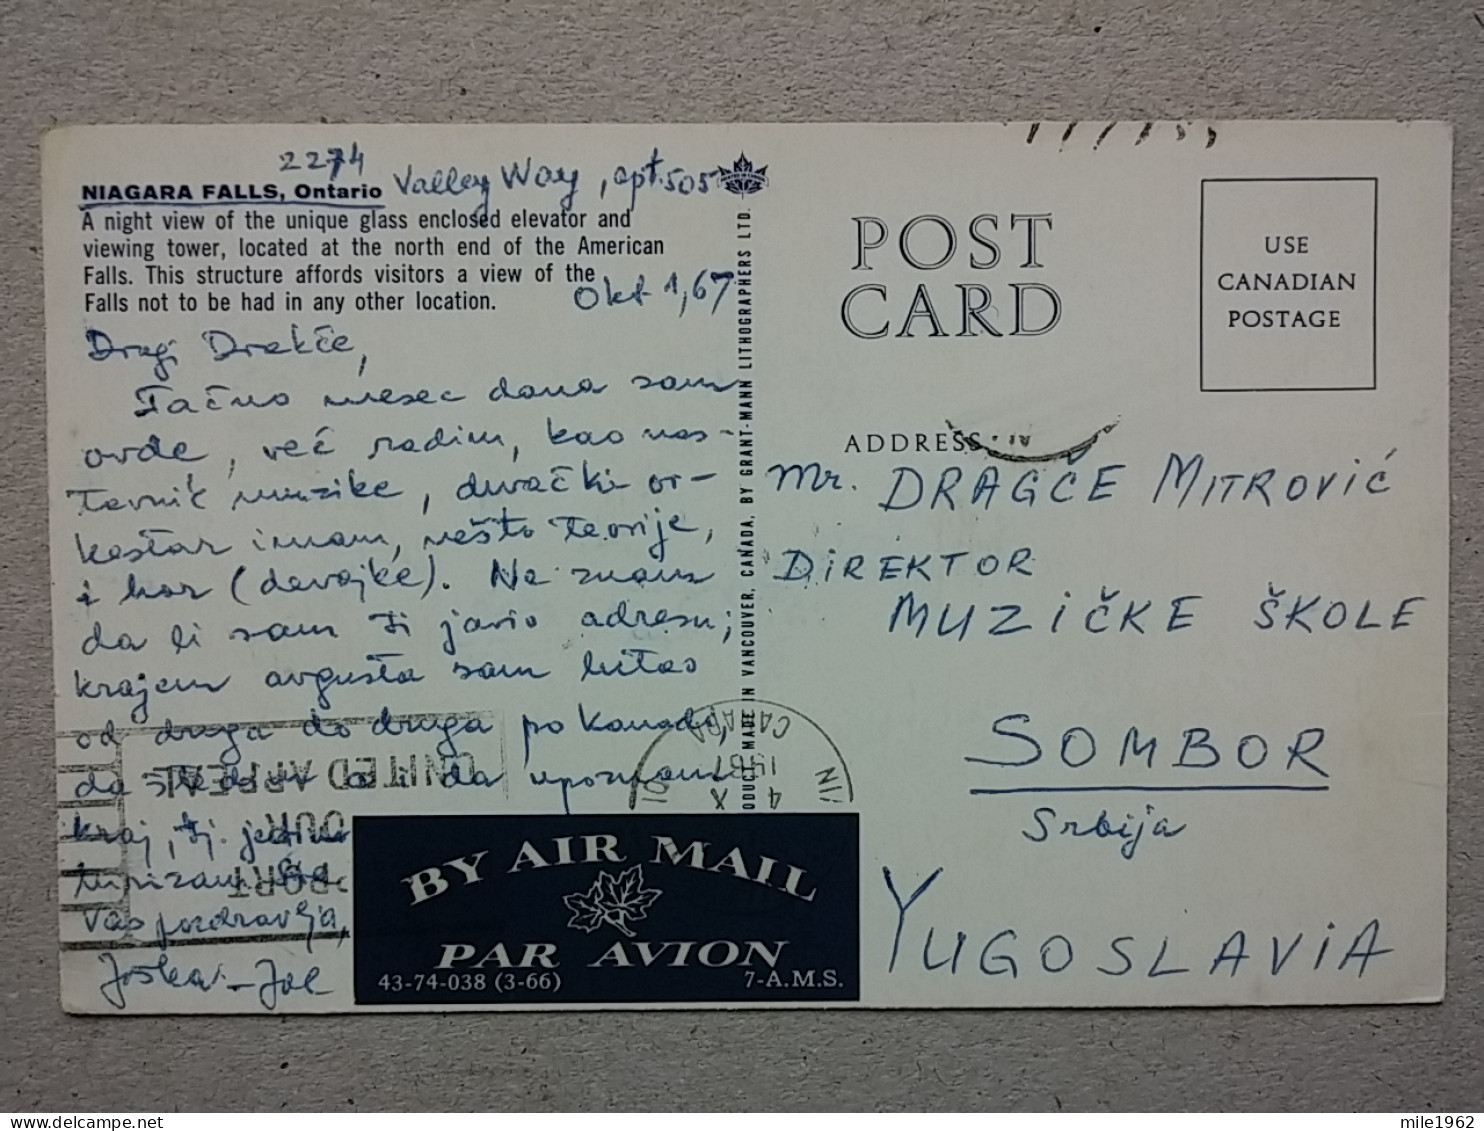 2274 Valley Way, apt. 505
NIAGARA FALLS, Ontario
A night view of the unique glass enclosed elevator and
viewing tower, located at the north end of the American
Falls. This structure affords visitors a view of the
Falls not to be had in any other location.
Okt 1, 67
Dragi Drakče,
Tačno mesec dana sam
ovde, već radim, kao nas-
tavnik muzike, duvački or-
kestar imam, nešto teorije,
i hor (devojke). Ne znam
da li sam ti javio adresu;
krajem avgusta sam lutao
od druga do druga po Kanadi,
da da upoznam
kraj, tj.
Vas pozdravlja,
Joška - Joe
PRODUCT MADE IN VANCOUVER, CANADA, BY GRANT-MANN LITHOGRAPHERS LTD.
POST
CARD
USE
CANADIAN
POSTAGE
ADDRESS
Mr. DRAGČE MITROVIĆ
DIREKTOR
MUZIČKE ŠKOLE
SOMBOR
Srbija
YUGOSLAVIA
CANADA
1967
4 X
UNITED APPEAL
OUR
PORT
BY AIR MAIL
PAR AVION
43-74-038 (3-66)
7-A.M.S.
mile1962